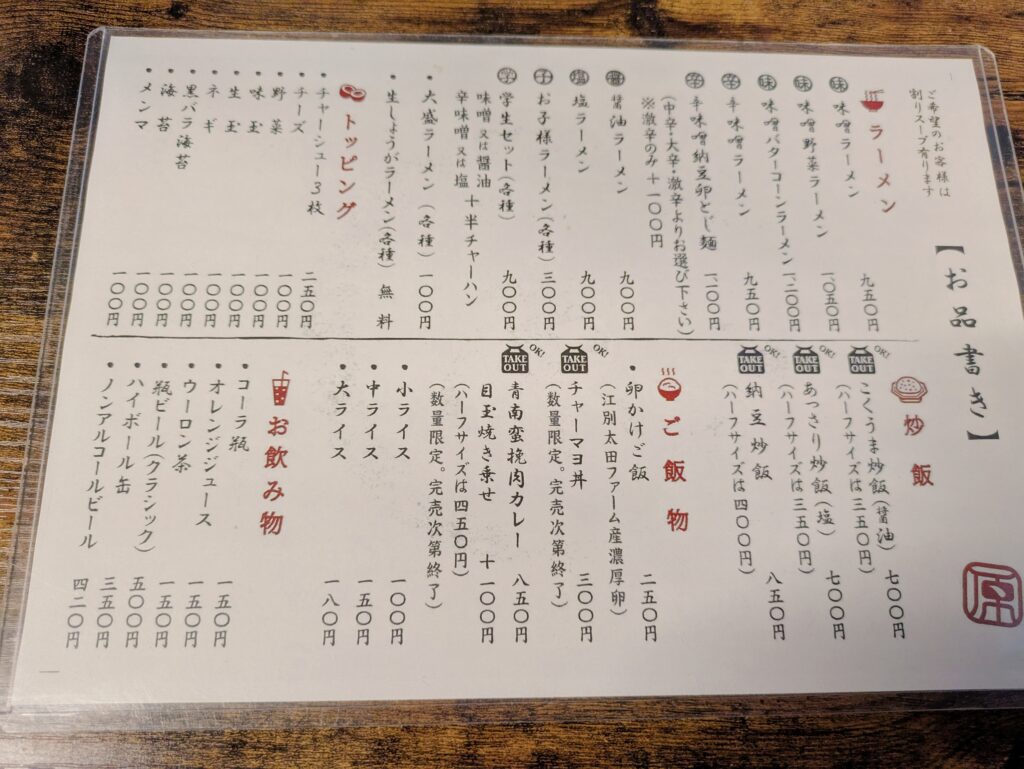 【お品書き】
原
ご希望のお客様は
割りスープ有ります
ラーメン
味 味噌ラーメン 九五〇円
味 味噌野菜ラーメン 一、〇五〇円
味 味噌バターコーンラーメン 一、二〇〇円
辛 辛味噌ラーメン 九五〇円
辛 辛味噌納豆卵とじ麺 一、一〇〇円
(中辛・大辛・激辛よりお選び下さい)
※激辛のみ+一〇〇円
醤 醤油ラーメン 九〇〇円
塩 塩ラーメン 九〇〇円
子 お子様ラーメン(各種) 三〇〇円
学 学生セット(各種) 九〇〇円
味噌 又は 醤油
辛味噌 又は 塩 +半チャーハン
・大盛ラーメン(各種) 一〇〇円
・生しょうがラーメン(各種) 無料
トッピング
・チャーシュー3枚 二五〇円
・チーズ 一〇〇円
・野菜 一〇〇円
・味玉 一〇〇円
・生玉 一〇〇円
・ネギ 一〇〇円
・黒バラ海苔 一〇〇円
・海苔 一〇〇円
・メンマ 一〇〇円
炒飯
TAKE OUT OK!
こくうま炒飯(醤油) 七〇〇円
(ハーフサイズは三五〇円)
TAKE OUT OK!
あっさり炒飯(塩) 七〇〇円
(ハーフサイズは三五〇円)
TAKE OUT OK!
納豆炒飯 八五〇円
(ハーフサイズは四〇〇円)
ご飯物
・卵かけご飯 二五〇円
(江別太田ファーム産濃厚卵)
TAKE OUT OK!
チャーマヨ丼 三〇〇円
(数量限定。完売次第終了)
TAKE OUT OK!
青南蛮挽肉カレー 八五〇円
目玉焼き乗せ +一〇〇円
(ハーフサイズは四五〇円)
(数量限定。完売次第終了)
・小ライス 一〇〇円
・中ライス 一五〇円
・大ライス 一八〇円
お飲み物
・コーラ瓶 一五〇円
・オレンジジュース 一五〇円
・ウーロン茶 一五〇円
・瓶ビール(クラシック) 五〇〇円
・ハイボール缶 三五〇円
・ノンアルコールビール 四二〇円